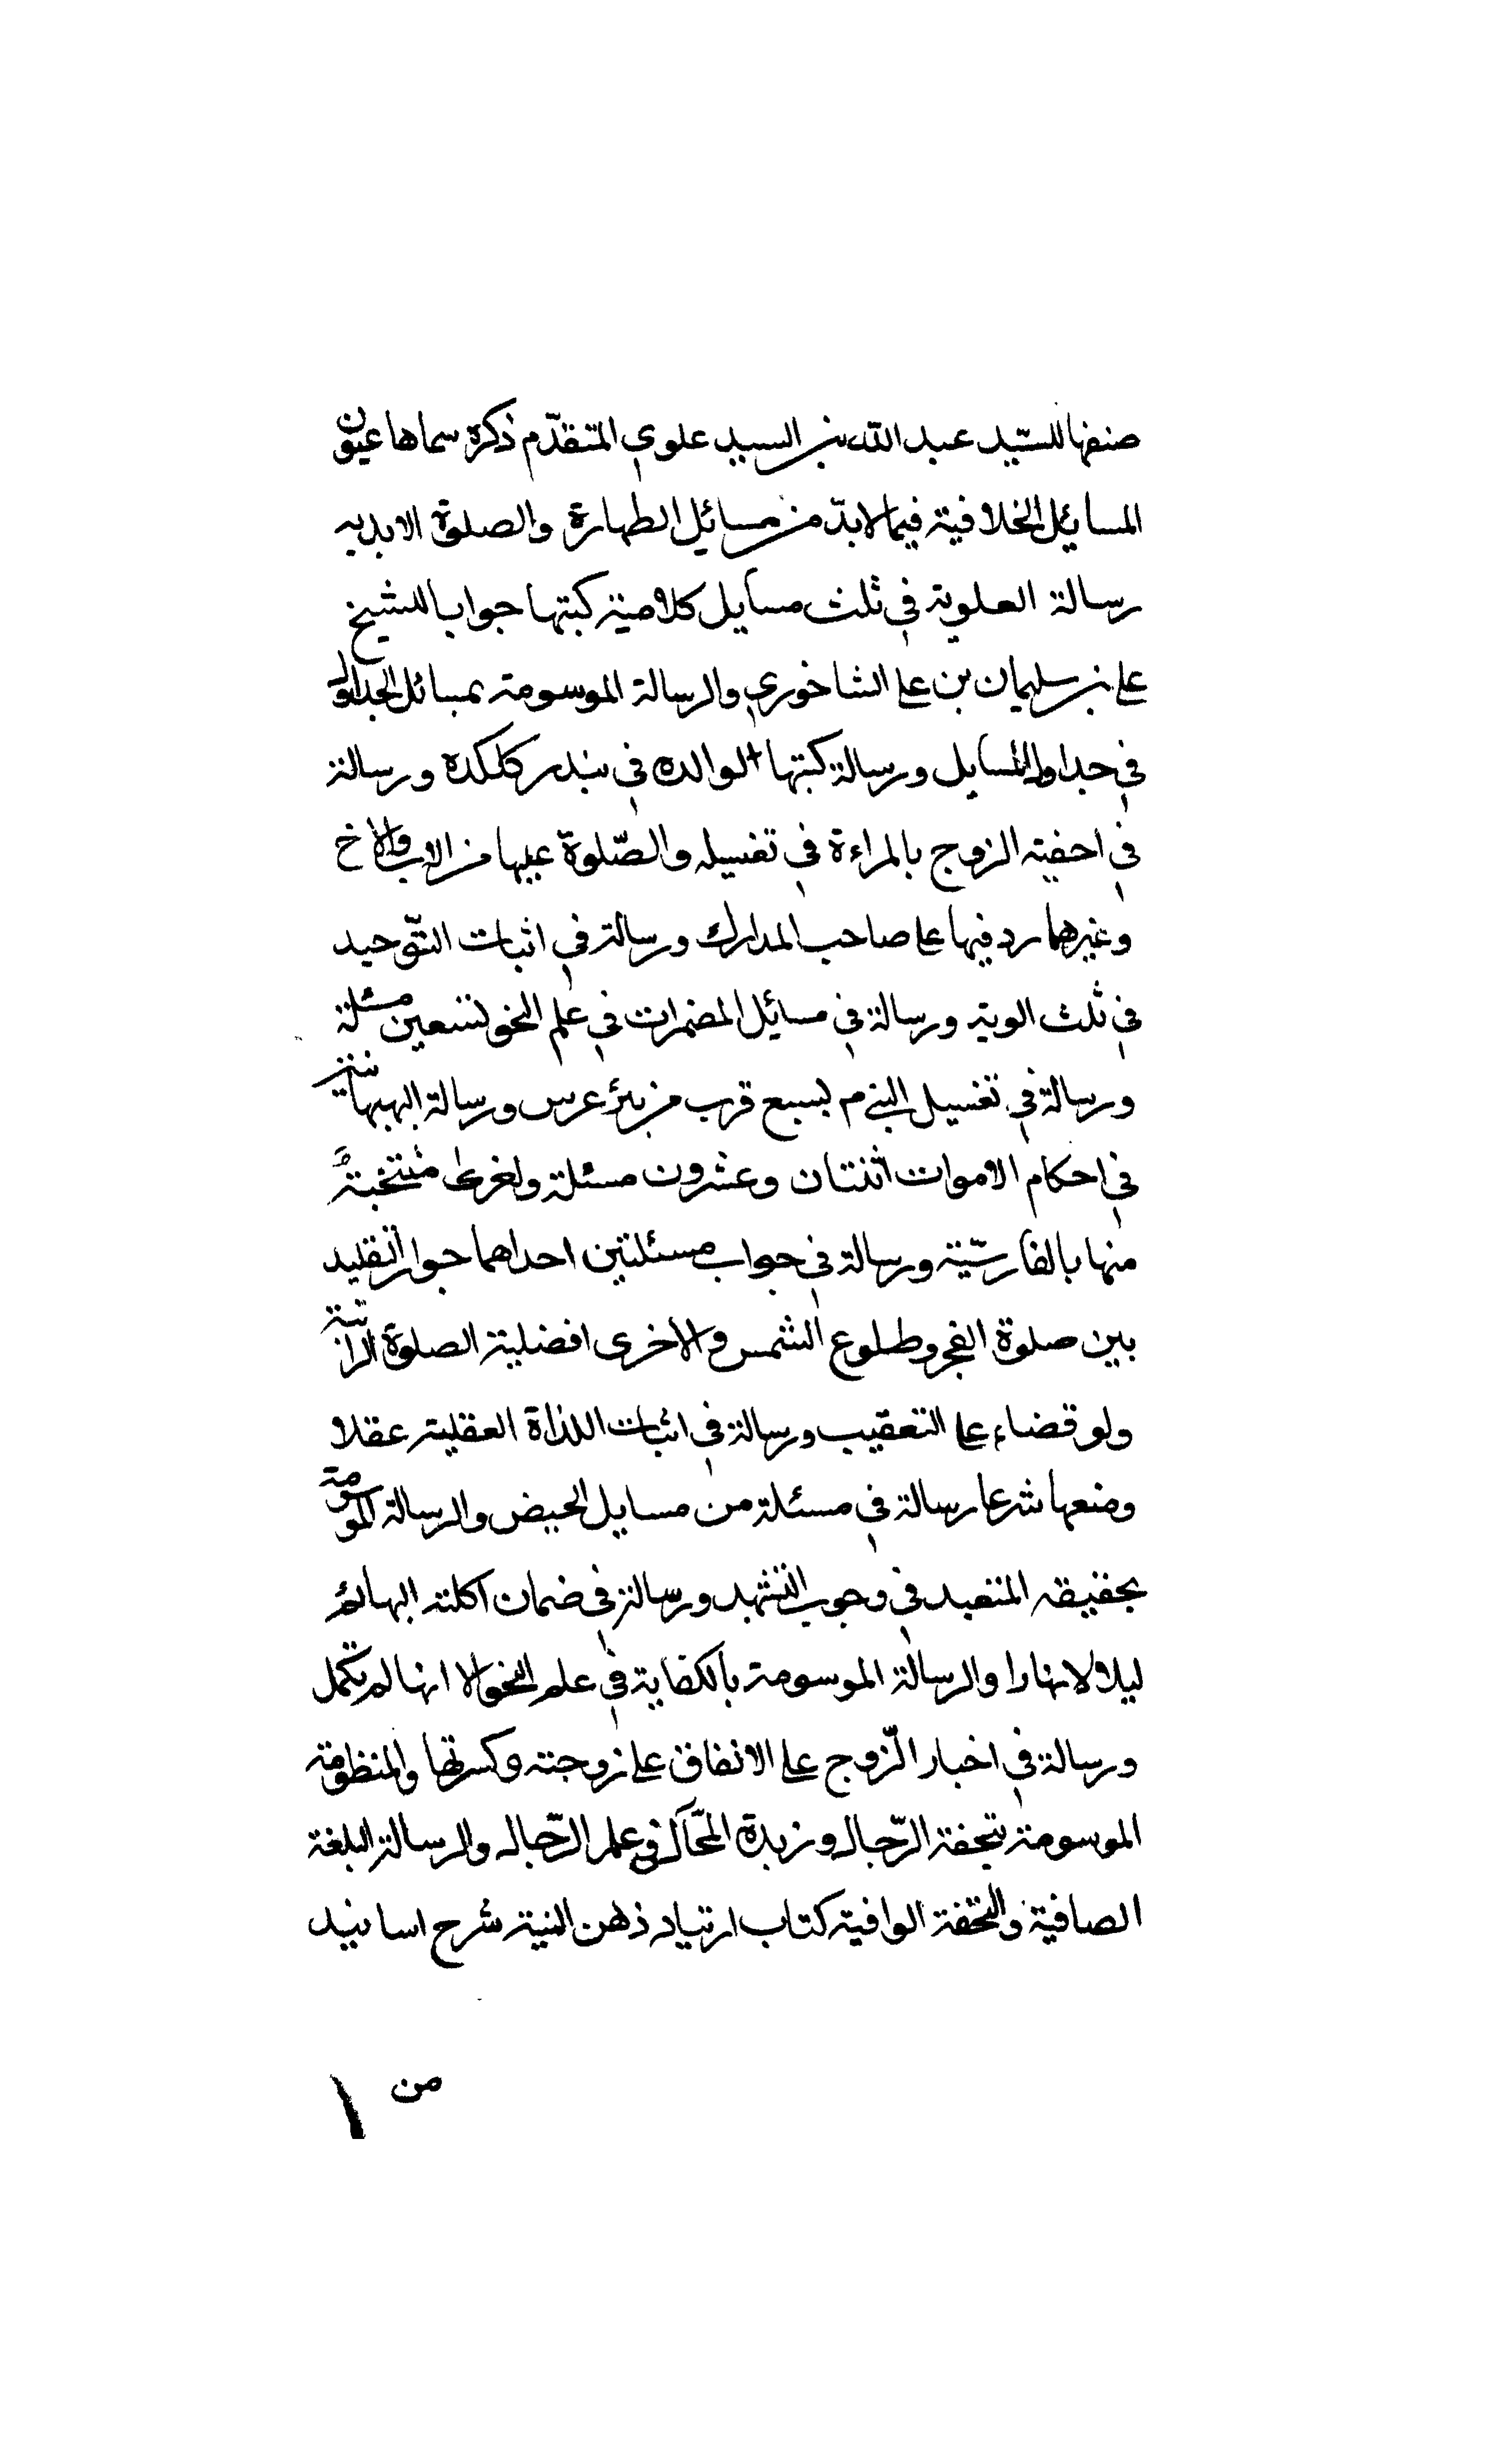 صنفها للسّيد عبد الله بن السيد علوي المتقدّم ذكره سماها عيون
المسائل الخلافية فيما لابدّ من مسائل الطهارة والصلوة الابديه
رسالة العلوية في ثلث مسايل كلامية كتبها جوابا للشيخ
علي بن سليمان بن علي الشاخوري والرسالة الموسومة بمسائل الجداول
في جداول المسايل ورسالة كتبها لوالده في بندر كلكده ورسالة
في احقية الزوج بالمراءة في تغسيله والصّلوة عليها من الاب والاخ
وغيرهما رد فيها علي صاحب المدارك ورسالة في اثبات التوّحيد
في ثلث الوية ورسالة في مسائل المضمرات في علم النحو تسعين مسئلة
ورسالة في تغسيل النبي م بسبع قرب من بئر عرس ورسالة البهبهانية
في احكام الاموات اثنتان وعشرون مسئلة ولغرى منتخبة
منها بالفارسّية ورسالة في جواب مسئلتين احداهما جواز التقليد
بين صلوة الفجر وطلوع الشمس والاخرى افضلية الصلوة الراتبة
ولو قضاء علي التعقيب ورسالة في اثبات اللذاة العقلية عقلا
ومنعها شرعا رسالة في مسئلة من مسايل الحيض والرسالة الموسومة
بحقيقه المتعبد في وجوب التشهد ورسالة في ضمان اكلته البهائم
ليلا لا نهارا والرسالة الموسومة بالكفاية في علم النحو الا انها لم تكمل
ورسالة في اخبار الّزوج علي الانفاق علي زوجته وكسوتها والمنظومة
الموسومة بتحفة الرّجال وزبدة المّآل في علم الرّجال والرسالة البلغة
الصافية والتحفة الوافية كتاب ارتياد ذهن النبيه شرح اسانيد
من ١